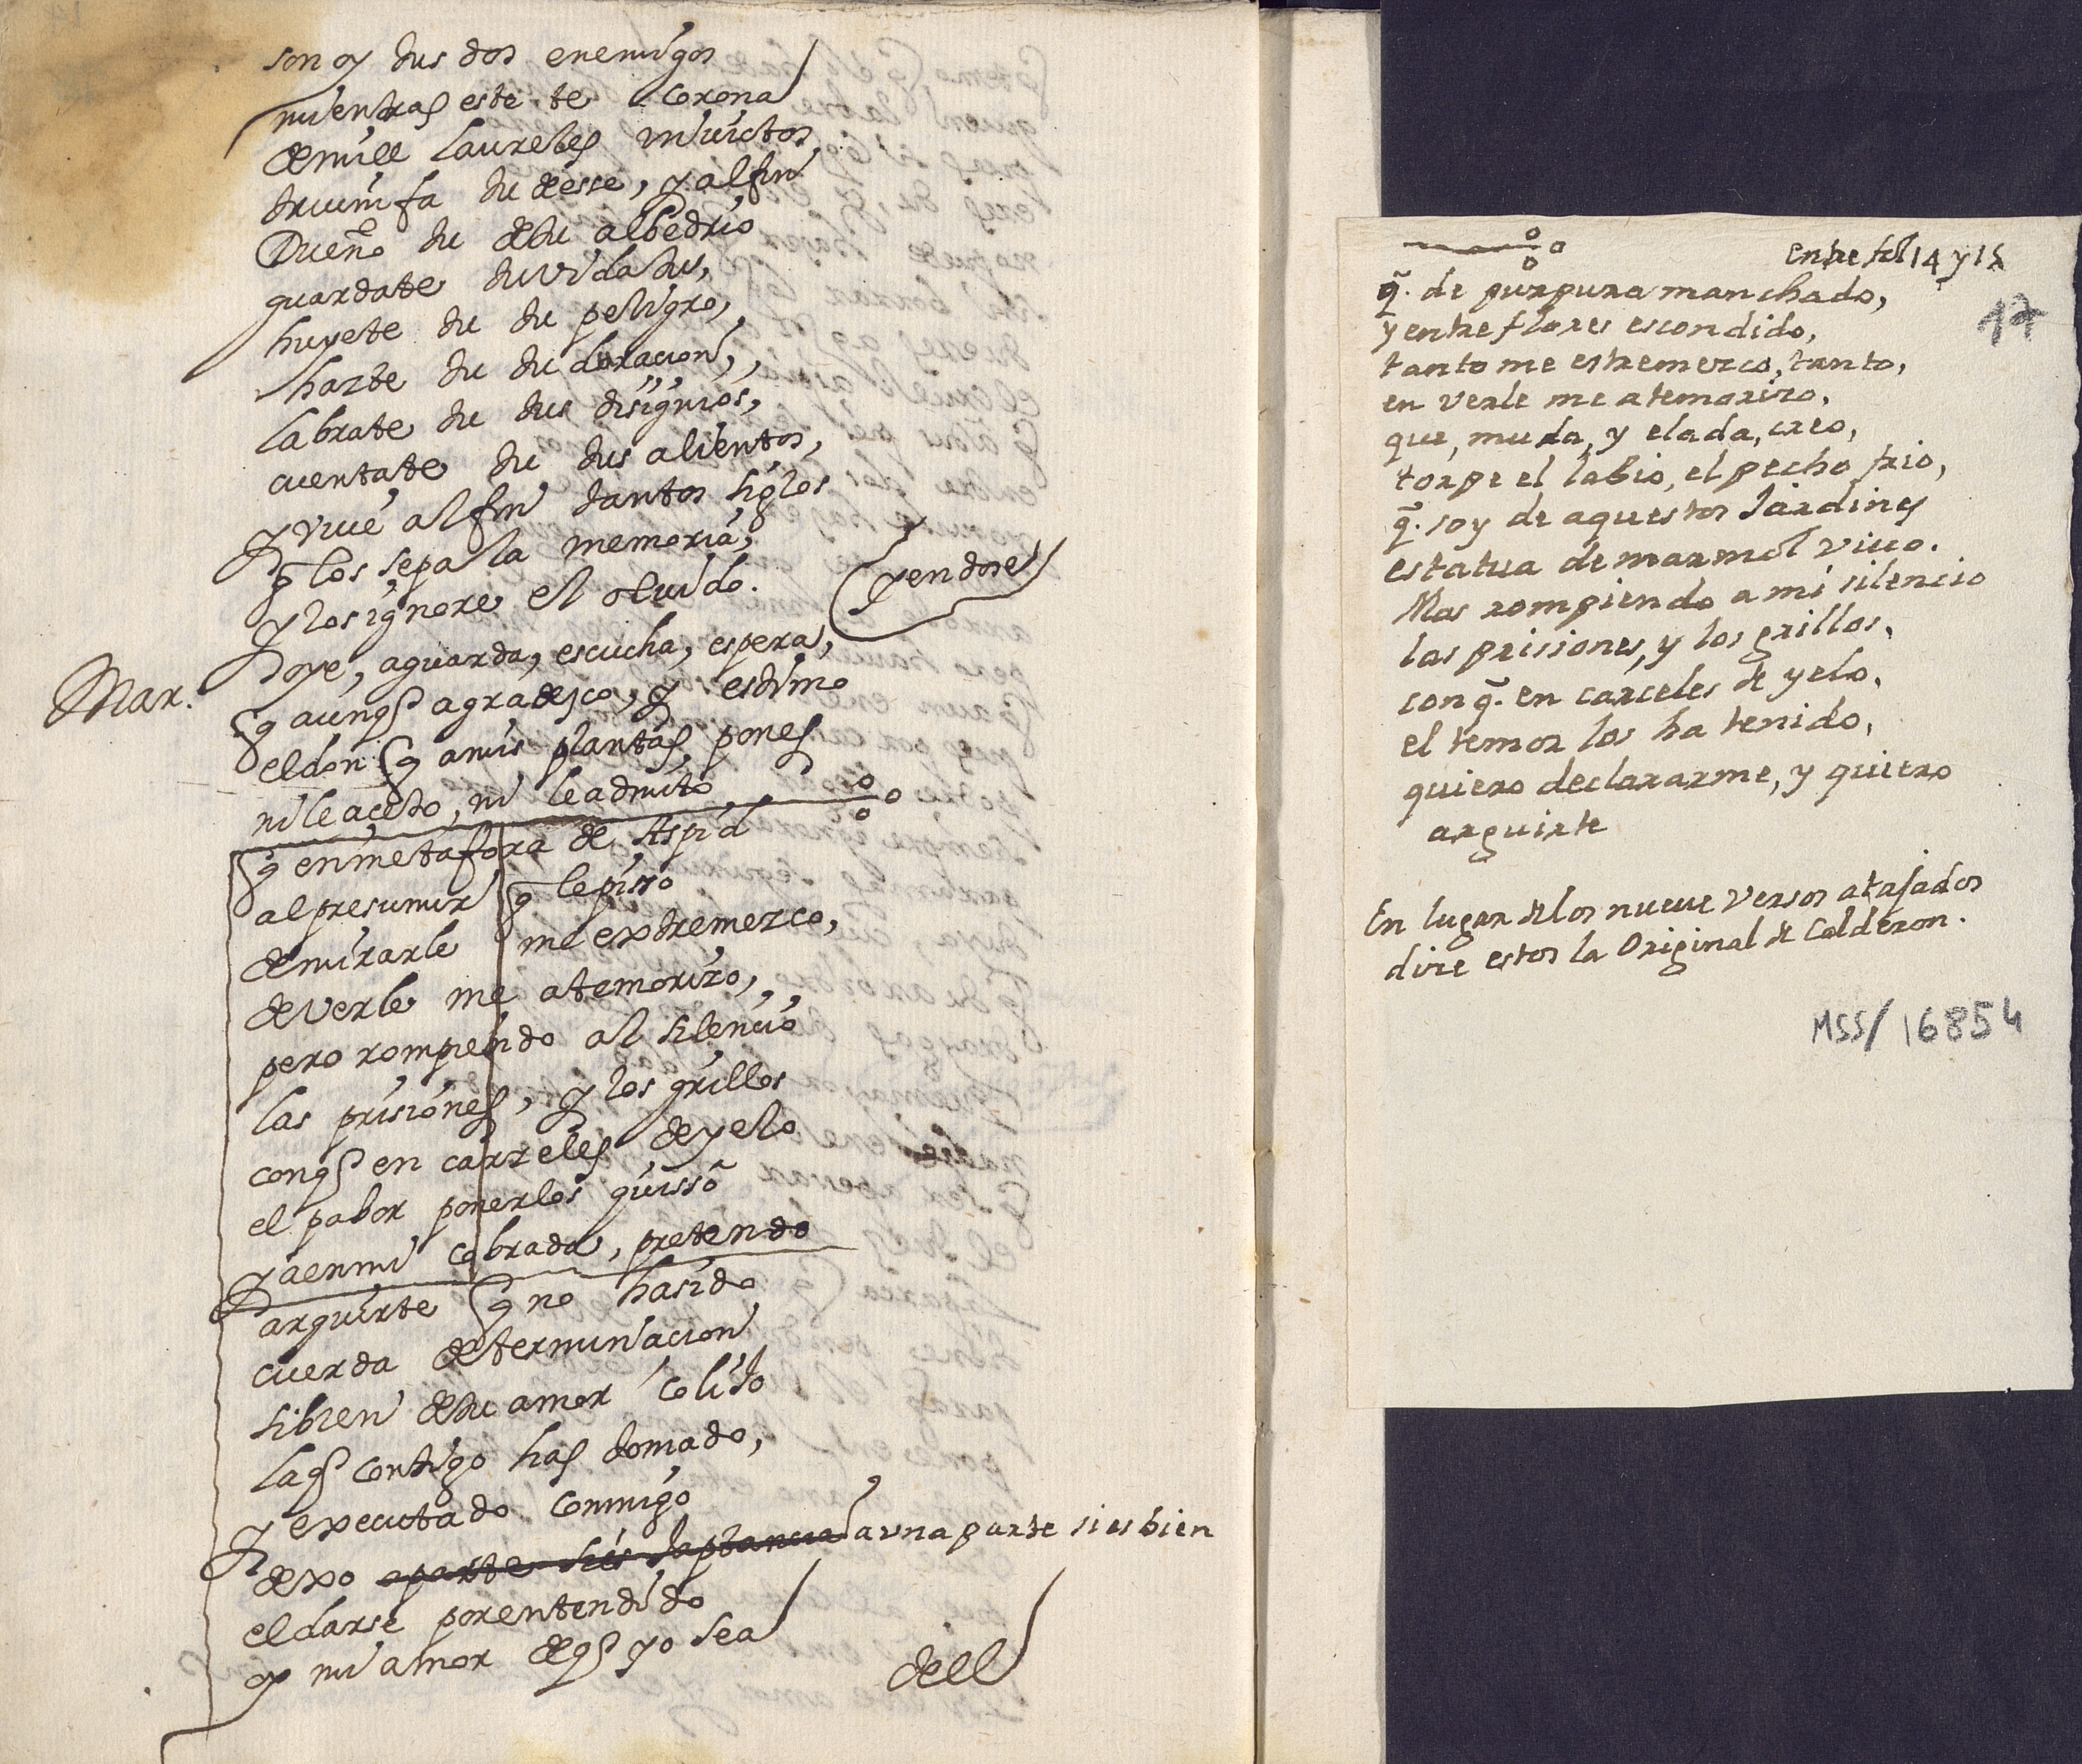 son oy tus dos enemigos
mientras este te corona
de mill laureles inuictos,
triumfa tu de esse, y al fin
Dueño tu de tu albedrio
guardate tu vida tus,
huyete tu tu peligro,
hazte tu tu duracion,
labrate tu tus disignios,
cuentate tu tus alientos,
y viue al fin tantos siglos
q los sepa la memoria,
y los ignore el oluido. (yendose)
Mar. oye, aguarda, escucha, espera,
q aunq agradesco, y estimo
el don q a mis plantas pones
ni le aceto, ni le admito
q en metafora de Aspid
al presumir q le piso
de mirarle me extremezco,
de verle me atemorizo,
pero rompiendo al silencio
las prisiones, y los grillos
conq en carzeles de yelo
el pabor ponerlos quisso
ya en mi cobrada, pretendo
arguirte q no ha sido
cuerda determinacion
si bien de tu amor
la q contigo has tomado,
y executado conmigo
dexo aparte si es a vna parte si es bien
el darse por entendido
oy mi amor de q yo sea
dell
entre fol 14 y 15
17
q. de purpura manchado,
y entre flores escondido,
tanto me estremezco, tanto,
en verle me atemorizo,
que, muda, y elada, creo,
torpe el labio, el pecho frio,
q. soy de aquestos Jardines
estatua de marmol viuo.
Mas rompiendo a mi silencio
las prisiones, y los grillos,
con q. en carceles de yelo,
el temor los ha tenido,
quiero declararme, y quiero
arguirte
En lugar de los nueue versos atajados
dize estos la Original de Calderon.
MSS/16854